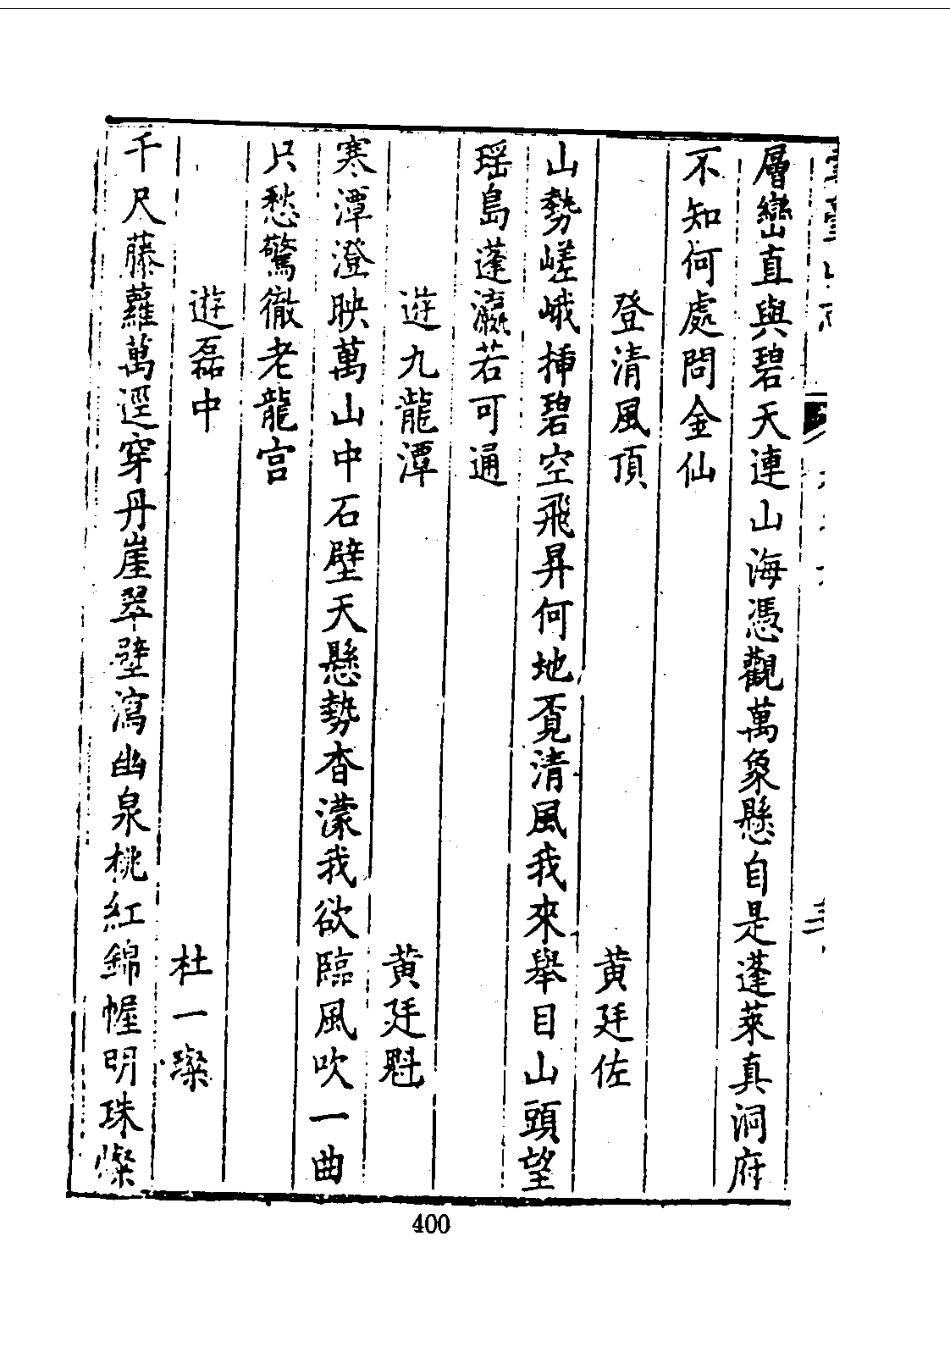 層巒直與碧天連山海憑觀萬象懸自是蓬萊真洞府
不知何處問金仙
登清風頂　黄廷佐
山勢嵯峨揷碧空飛昇何地覓清風我來舉目山頭望
瑶島蓬瀛若可通
遊九龍潭　黄廷魁
寒潭澄映萬山中石壁天懸勢杳濛我欲臨風吹一曲
只愁驚徹老龍宫
遊磊中　杜一璨
千尺藤蘿萬逕穿丹崖翠壁瀉幽泉桃紅錦幄明珠燦
400